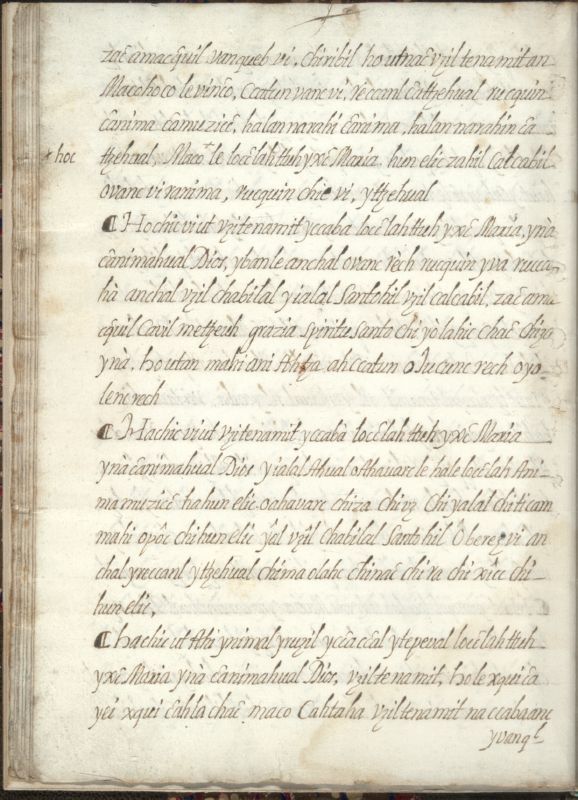 zac amacquil vanqueb vi, chiribil ho utnac vzil tenamit an
Maco hoco le vinco, Ccatun vanc vi, reccanl catzehual rucquin
canima camuzicc, halan narahi canima, halan narahin ca
+ hoc
tzehual Maco+ le locclah ttuh yxc Maria, hun elic zahil Calcabil
ovanc vi ranima, rucquin chic vi, ytzehual
¶ Hochic viut vzitenamit yccaba locclah ttuh yxc Maria, yna
canimahual Dios, ybanle anchal ovanc rech rucquin yva rucca
ha anchal vzil chabilal yialal Santohil vzil calcabil, zac ama
cquil Cavil metzeuh grazia Spiritu Santo chi yolahic chac chiza
yna, ho utan mahi ani Ahtza ah ccatun o Jucunc rech o yo
lenc rech
¶ Hachic viut vzitenamit yccaba locclah ttuh yxc Maria
yna canimahual Dios yialal Ahual oAhauarc le hale locclah Ani
ma muzicc ha hun elic oahavarc chiza chivz Chi yalal chiticam
mahi opoc chi hun elic yol vzil chabilal Santohil Oberez vi an
chal yreccanl ytzehual chima olahc chinac chi ra chi xicc chi
hun elic,
¶ Chachic ut Ati ynimal yruzil yccaccal ytepeval locclah ttuh
yxc Maria yna canimahual Dios, vzil tenamit, ho le xqui ca
yei xqui cahla chac maco Cahtaha vzil tenamit naccaba anc
yvanql